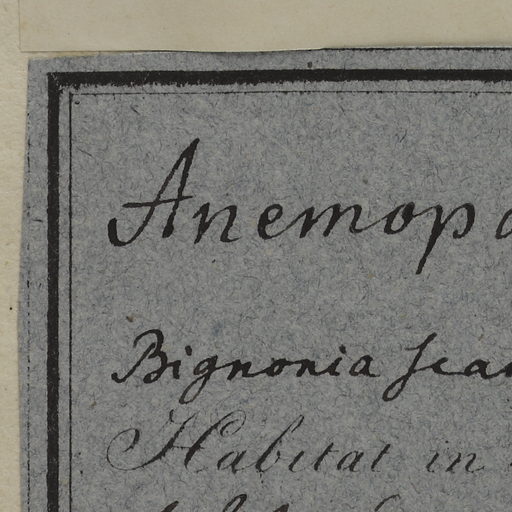 Anemopa
Bignonia scan
Habitat in